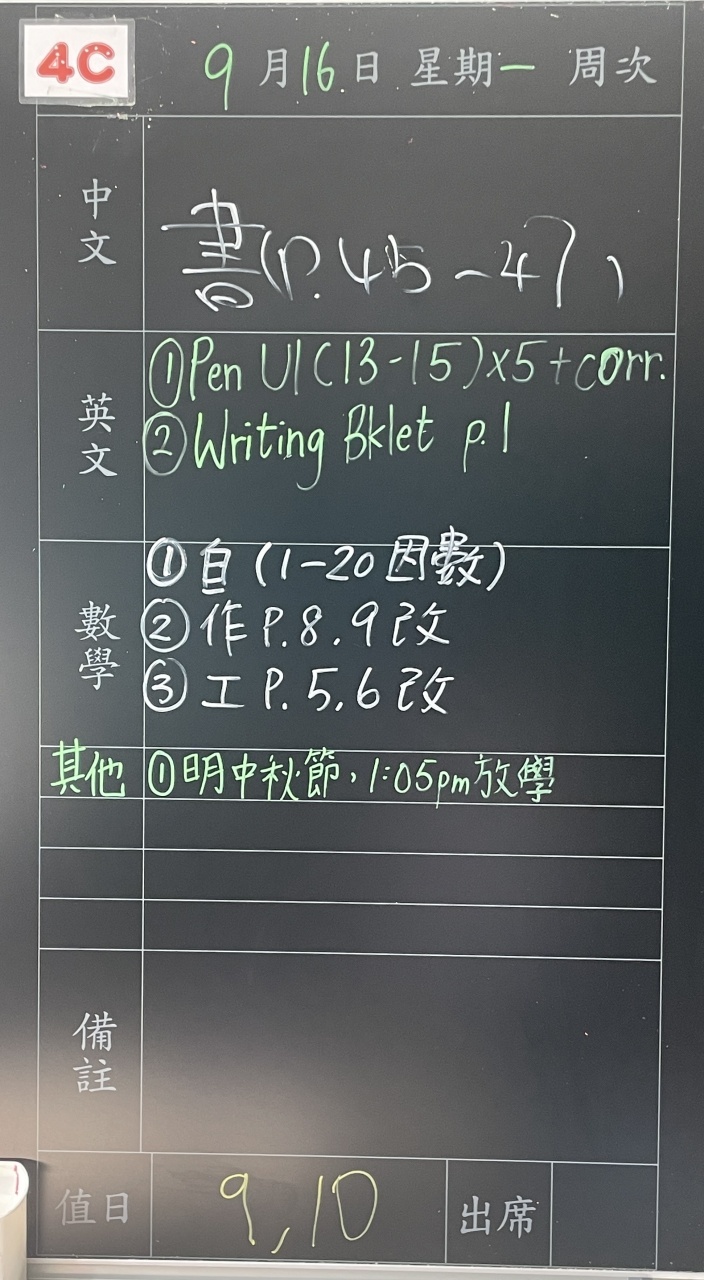 4C
9月16日 星期一 周次
中文
書(P.45-47)
英文
①Pen U1(13-15)x5+corr.
②Writing Bklet p.1
數學
①自(1-20因數)
②作P.8.9改
③工P.5,6改
其他 ①明中秋節，1:05pm放學
備註
值日 9,10 出席